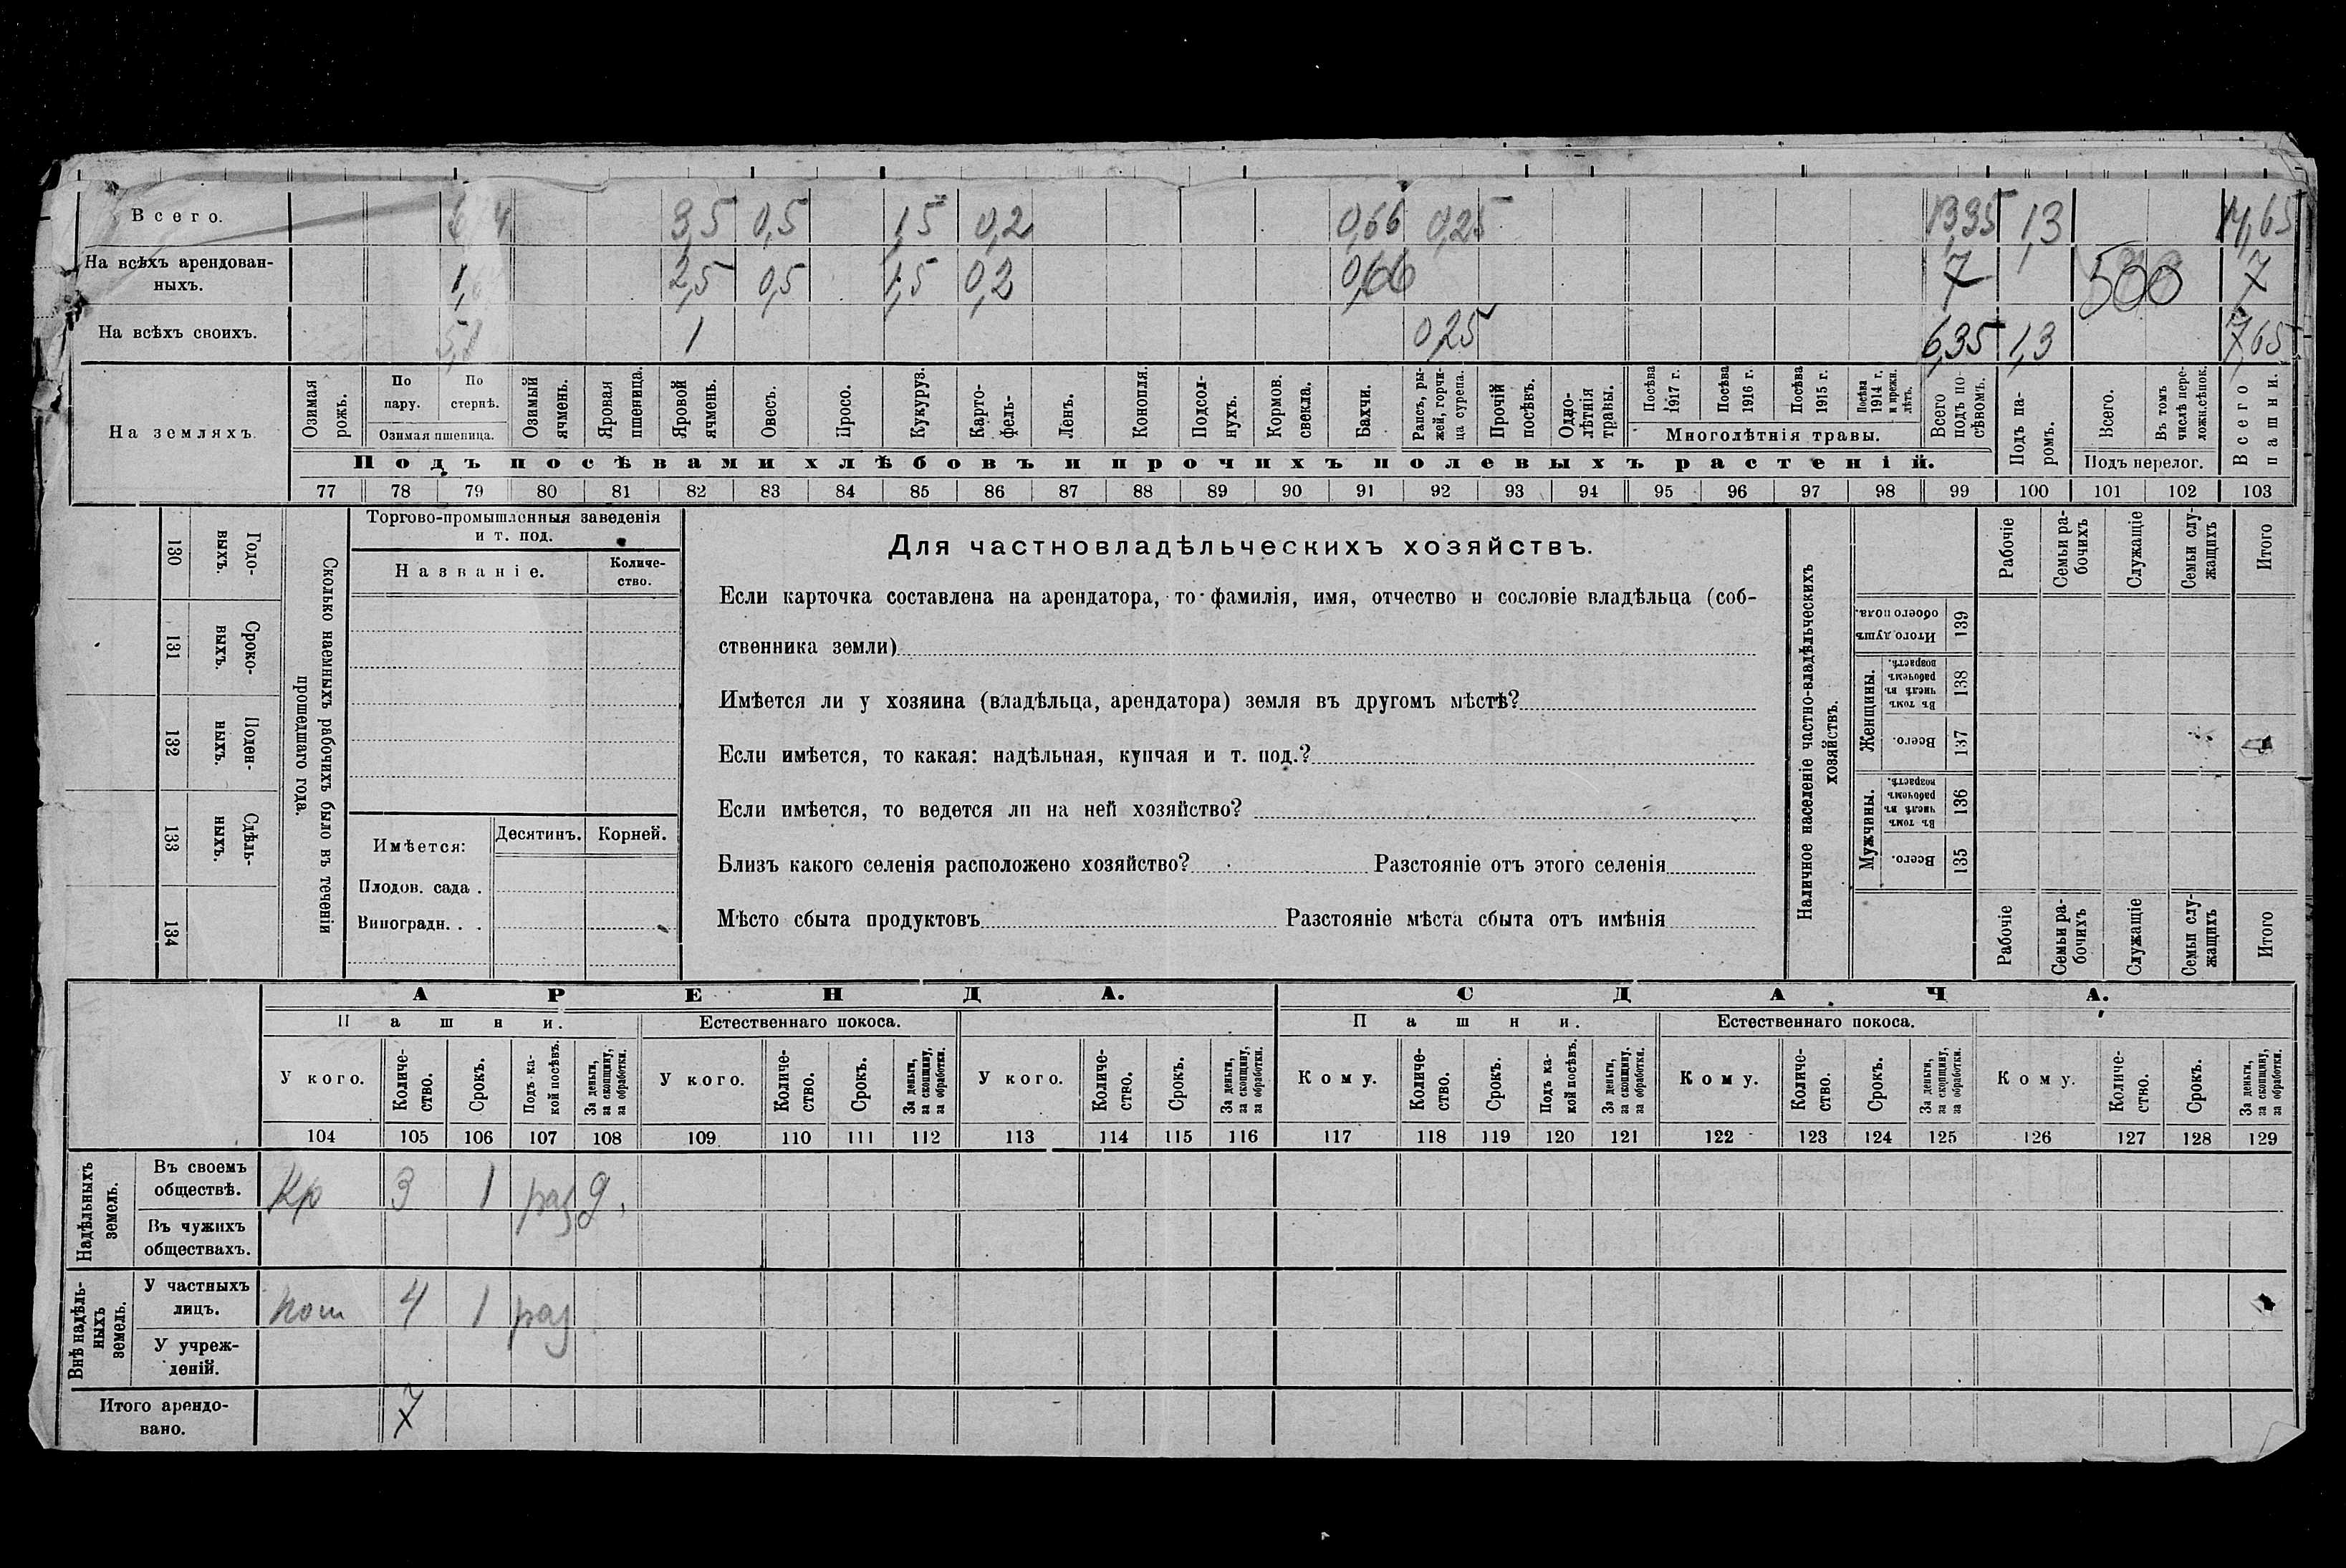 Всего. 3,5 0,5 1,5 0,2 0,66 0,25 13,35 1,3 14,65
На всѣхъ арендован-
ныхъ. 2,5 0,5 1,5 0,2 0,66 7 500 7
На всѣхъ своихъ. 1 0,25 6,35 1,3 7,65
На земляхъ.
Озимая рожь.
По пару.
По стернѣ.
Озимая пшеница.
Озимый ячмень.
Яровая пшеница.
Яровой ячмень.
Овесъ.
Просо.
Кукуруз.
Карто-
фель-
Ленъ.
Конопля.
Подсол-
нухъ.
Кормов. свекла.
Бахчи.
Рапсъ, ры-
жей, горчи-
ца сурепа.
Прочій посѣвъ.
Одно-
лѣтнія травы.
Посѣва 1917 г.
Посѣва 1916 г.
Посѣва 1915 г.
Посѣва 1914 г. и прежн. лѣтъ.
Многолѣтнія травы.
Всего подъ по-
сѣвомъ.
Подъ па-
ромъ.
Всего.
Въ томъ числѣ пере-
ложн.сѣнок.
Подъ перелог.
Всего пашни.
Подъ посѣвами хлѣбовъ и прочихъ полевыхъ растеній.
77 78 79 80 81 82 83 84 85 86 87 88 89 90 91 92 93 94 95 96 97 98 99 100 101 102 103
130 Годо-
выхъ.
131 Сроко-
выхъ.
132 Поден-
ныхъ.
133 Сдѣль-
ныхъ.
134
Сколько наемныхъ рабочихъ было въ теченіи
прошедшаго года.
Торгово-промышленныя заведенія
и т. под.
Названіе.
Количе-
ство.
Имѣется: Десятинъ. Корней.
Плодов. сада .
Виноградн. . .
Для частновладѣльческихъ хозяйствъ.
Если карточка составлена на арендатора, то фамилія, имя, отчество и сословіе владѣльца (соб-
ственника земли)
Имѣется ли у хозяина (владѣльца, арендатора) земля въ другомъ мѣстѣ?
Если имѣется, то какая: надѣльная, купчая и т. под.?
Если имѣется, то ведется ли на ней хозяйство?
Близъ какого селенія расположено хозяйство? Разстояніе отъ этого селенія
Мѣсто сбыта продуктовъ Разстояніе мѣста сбыта отъ имѣнія
Наличное населеніе частно-владѣльческихъ
хозяйствъ.
Рабочіе
Семьи ра-
бочихъ
Служащіе
Семьи слу-
жащихъ
Итого
Итого душъ обоего пола. 139
Женщины.
Въ томъ числѣ въ рабочемъ возрастѣ. 138
Всего. 137
Мужчины.
Въ томъ числѣ въ рабочемъ возрастѣ. 136
Всего. 135
Рабочіе
Семьи ра-
бочихъ
Служащіе
Семьи слу-
жащихъ
Итого
АРЕНДА. СДАЧА.
Пашни. Естественнаго покоса. Пашни. Естественнаго покоса.
У кого.
Количе-
ство.
Срокъ.
Подъ ка-
кой посѣвъ.
За деньги, за скопщину, за обработки.
У кого.
Количе-
ство.
Срокъ.
За деньги, за скопщину, за обработки.
У кого.
Количе-
ство.
Срокъ.
За деньги, за скопщину, за обработки.
Кому.
Количе-
ство.
Срокъ.
Подъ ка-
кой посѣвъ.
За деньги, за скопщину, за обработки.
Кому.
Количе-
ство.
Срокъ.
За деньги, за скопщину, за обработки.
Кому.
Количе-
ство.
Срокъ.
За деньги, за скопщину, за обработки.
104 105 106 107 108 109 110 111 112 113 114 115 116 117 118 119 120 121 122 123 124 125 126 127 128 129
Надѣльныхъ
земель.
Въ своемъ
обществѣ. Кр 3 1 раз д.
Въ чужихъ
обществахъ.
Внѣ надѣль-
ныхъ
земель.
У частныхъ
лицъ. пом 4 1 раз
У учреж-
деній.
Итого арендо-
вано. 7